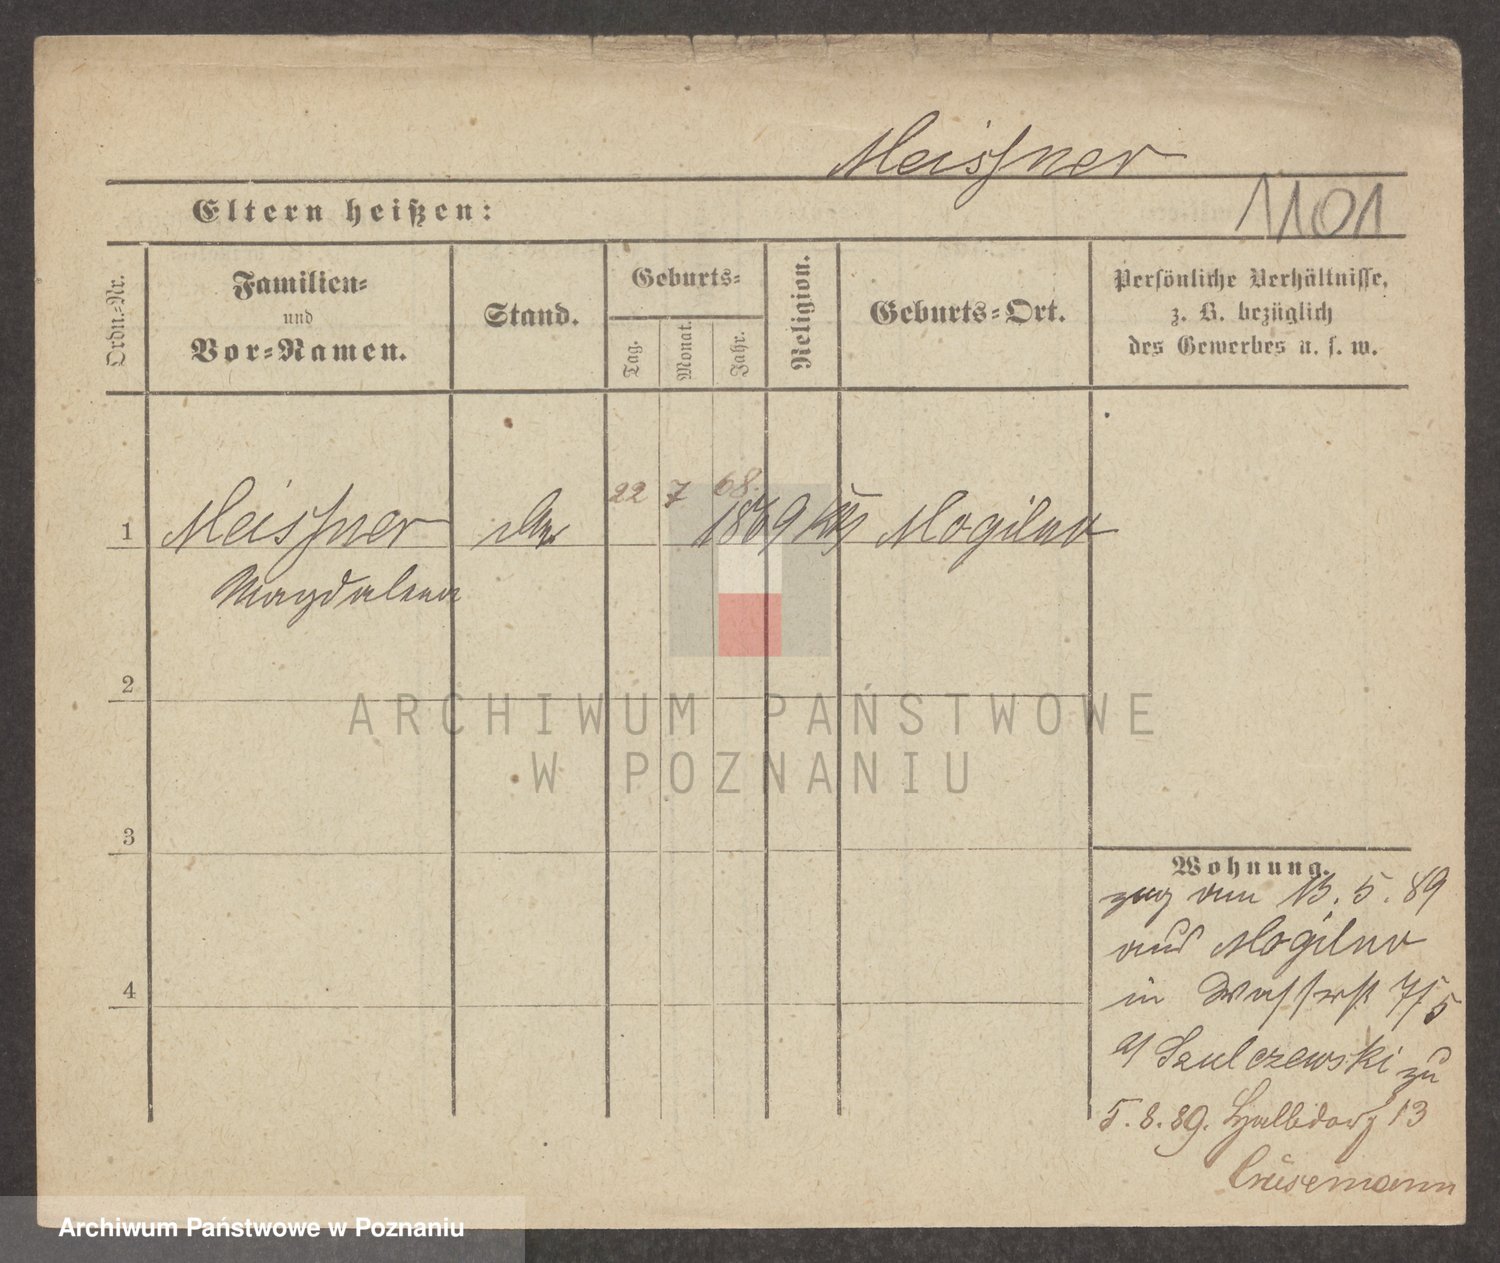 Meißner
1101
Eltern heißen:
Ordn.-Nr.
Familien-
und
Vor-Namen.
Stand.
Geburts-
Tag.
Monat.
Jahr.
Religion.
Geburts-Ort.
Persönliche Verhältnisse,
z. B. bezüglich
des Gewerbes u. s. w.
22 7 68.
1 Meißner 1869 Mogilno
Magdalena
2
3
4
ARCHIWUM PAŃSTWOWE
W POZNANIU
Wohnung.
zug am 13. 5. 89
aus Mogilno
in Wasserst 7/5
Szulczewski zu
5. 8. 89. Halbdorf 13
Crüsemann
Archiwum Państwowe w Poznaniu